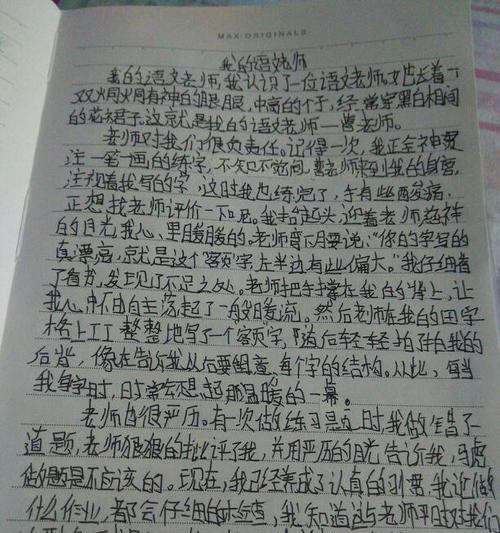 MAX ORIGINALS
我的语文老师
我的语文老师,我认识了一位语文老师。她长着一
双炯炯有神的眼睛,中高的个子,经常穿黑白相间
的花裙子。这就是我的语文老师——曹老师。
老师对我们很负责任。记得一次,我正全神贯
注一笔一画的练字,不知不觉间,曹老师来到我的身旁,
注视着我写的字,这时我也练完了,手有些酸痛,
正想找老师评价一下呢。我抬起头,迎着老师慈祥
的目光我心里暖暖的。老师弯下月要说:“你的字写的
真漂亮,就是这个‘客页’字,左半边有些偏大。”我仔细看
了看书,发现了不足之处。老师把手撑在我的背上,让
我心中不由自主荡起了一般暖流。然后老师在我的田字
格上工工整整地写了一个‘客页’字,
后背,像在告诉我以后要注意每个字的结构。从此,每当
我写字时,时常在想起那温暖的一幕。
老师也很严历。有一次做练习是
道题,老师狠狠的批评了我,并用严历的目光告诉我,马虎
是不应该的。现在,我已经养成了认真的习惯,我
什么作业,都会仔细的检查,我知道这与老师平时对我们